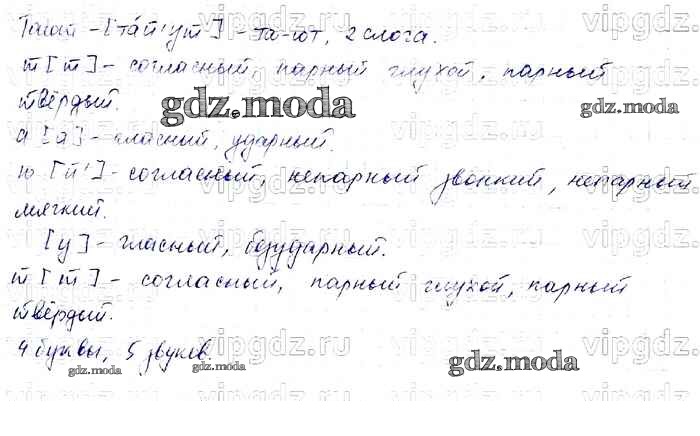 Тают – [та́й'ут] – та-ют, 2 слога.
т [т] – согласный, парный глухой, парный
твёрдый.
а [а] – гласный, ударный.
ю [й'] – согласный, непарный звонкий, непарный
мягкий.
[у] – гласный, безударный.
т [т] – согласный, парный глухой, парный
твёрдый.
4 буквы, 5 звуков.
gdz.moda
gdz.moda
gdz.moda
gdz.moda
gdz.moda
vipgdz.ru